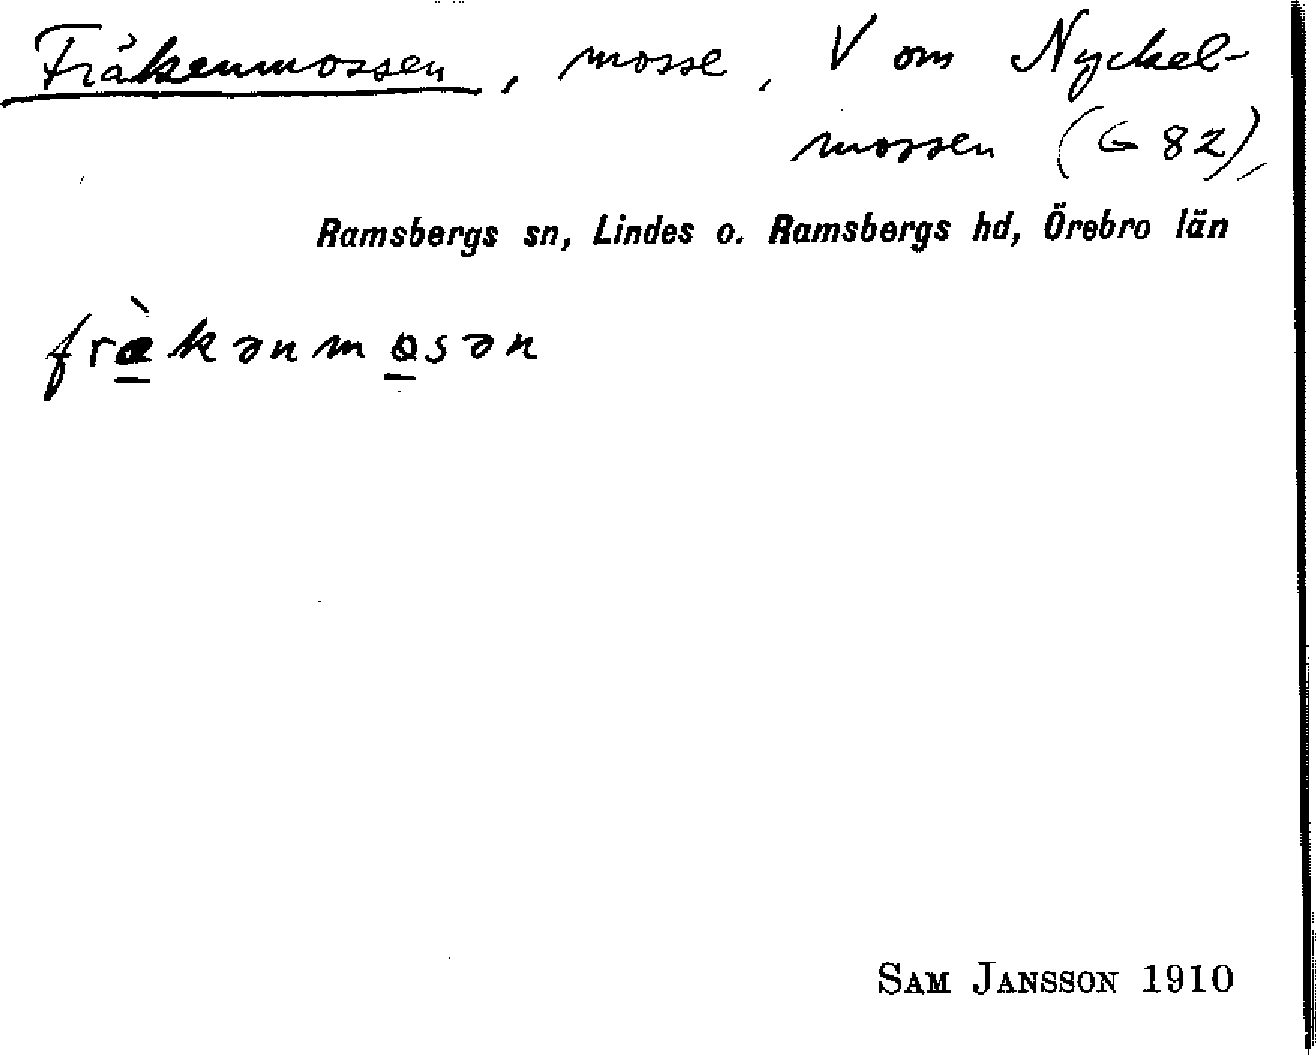 Fräkenmossen, mosse, V om Nyckel-
mossen (G 82),
Ramsbergs sn, Lindes o. Ramsbergs hd, Örebro län
fræ̀kənmosən
SAM JANSSON 1910